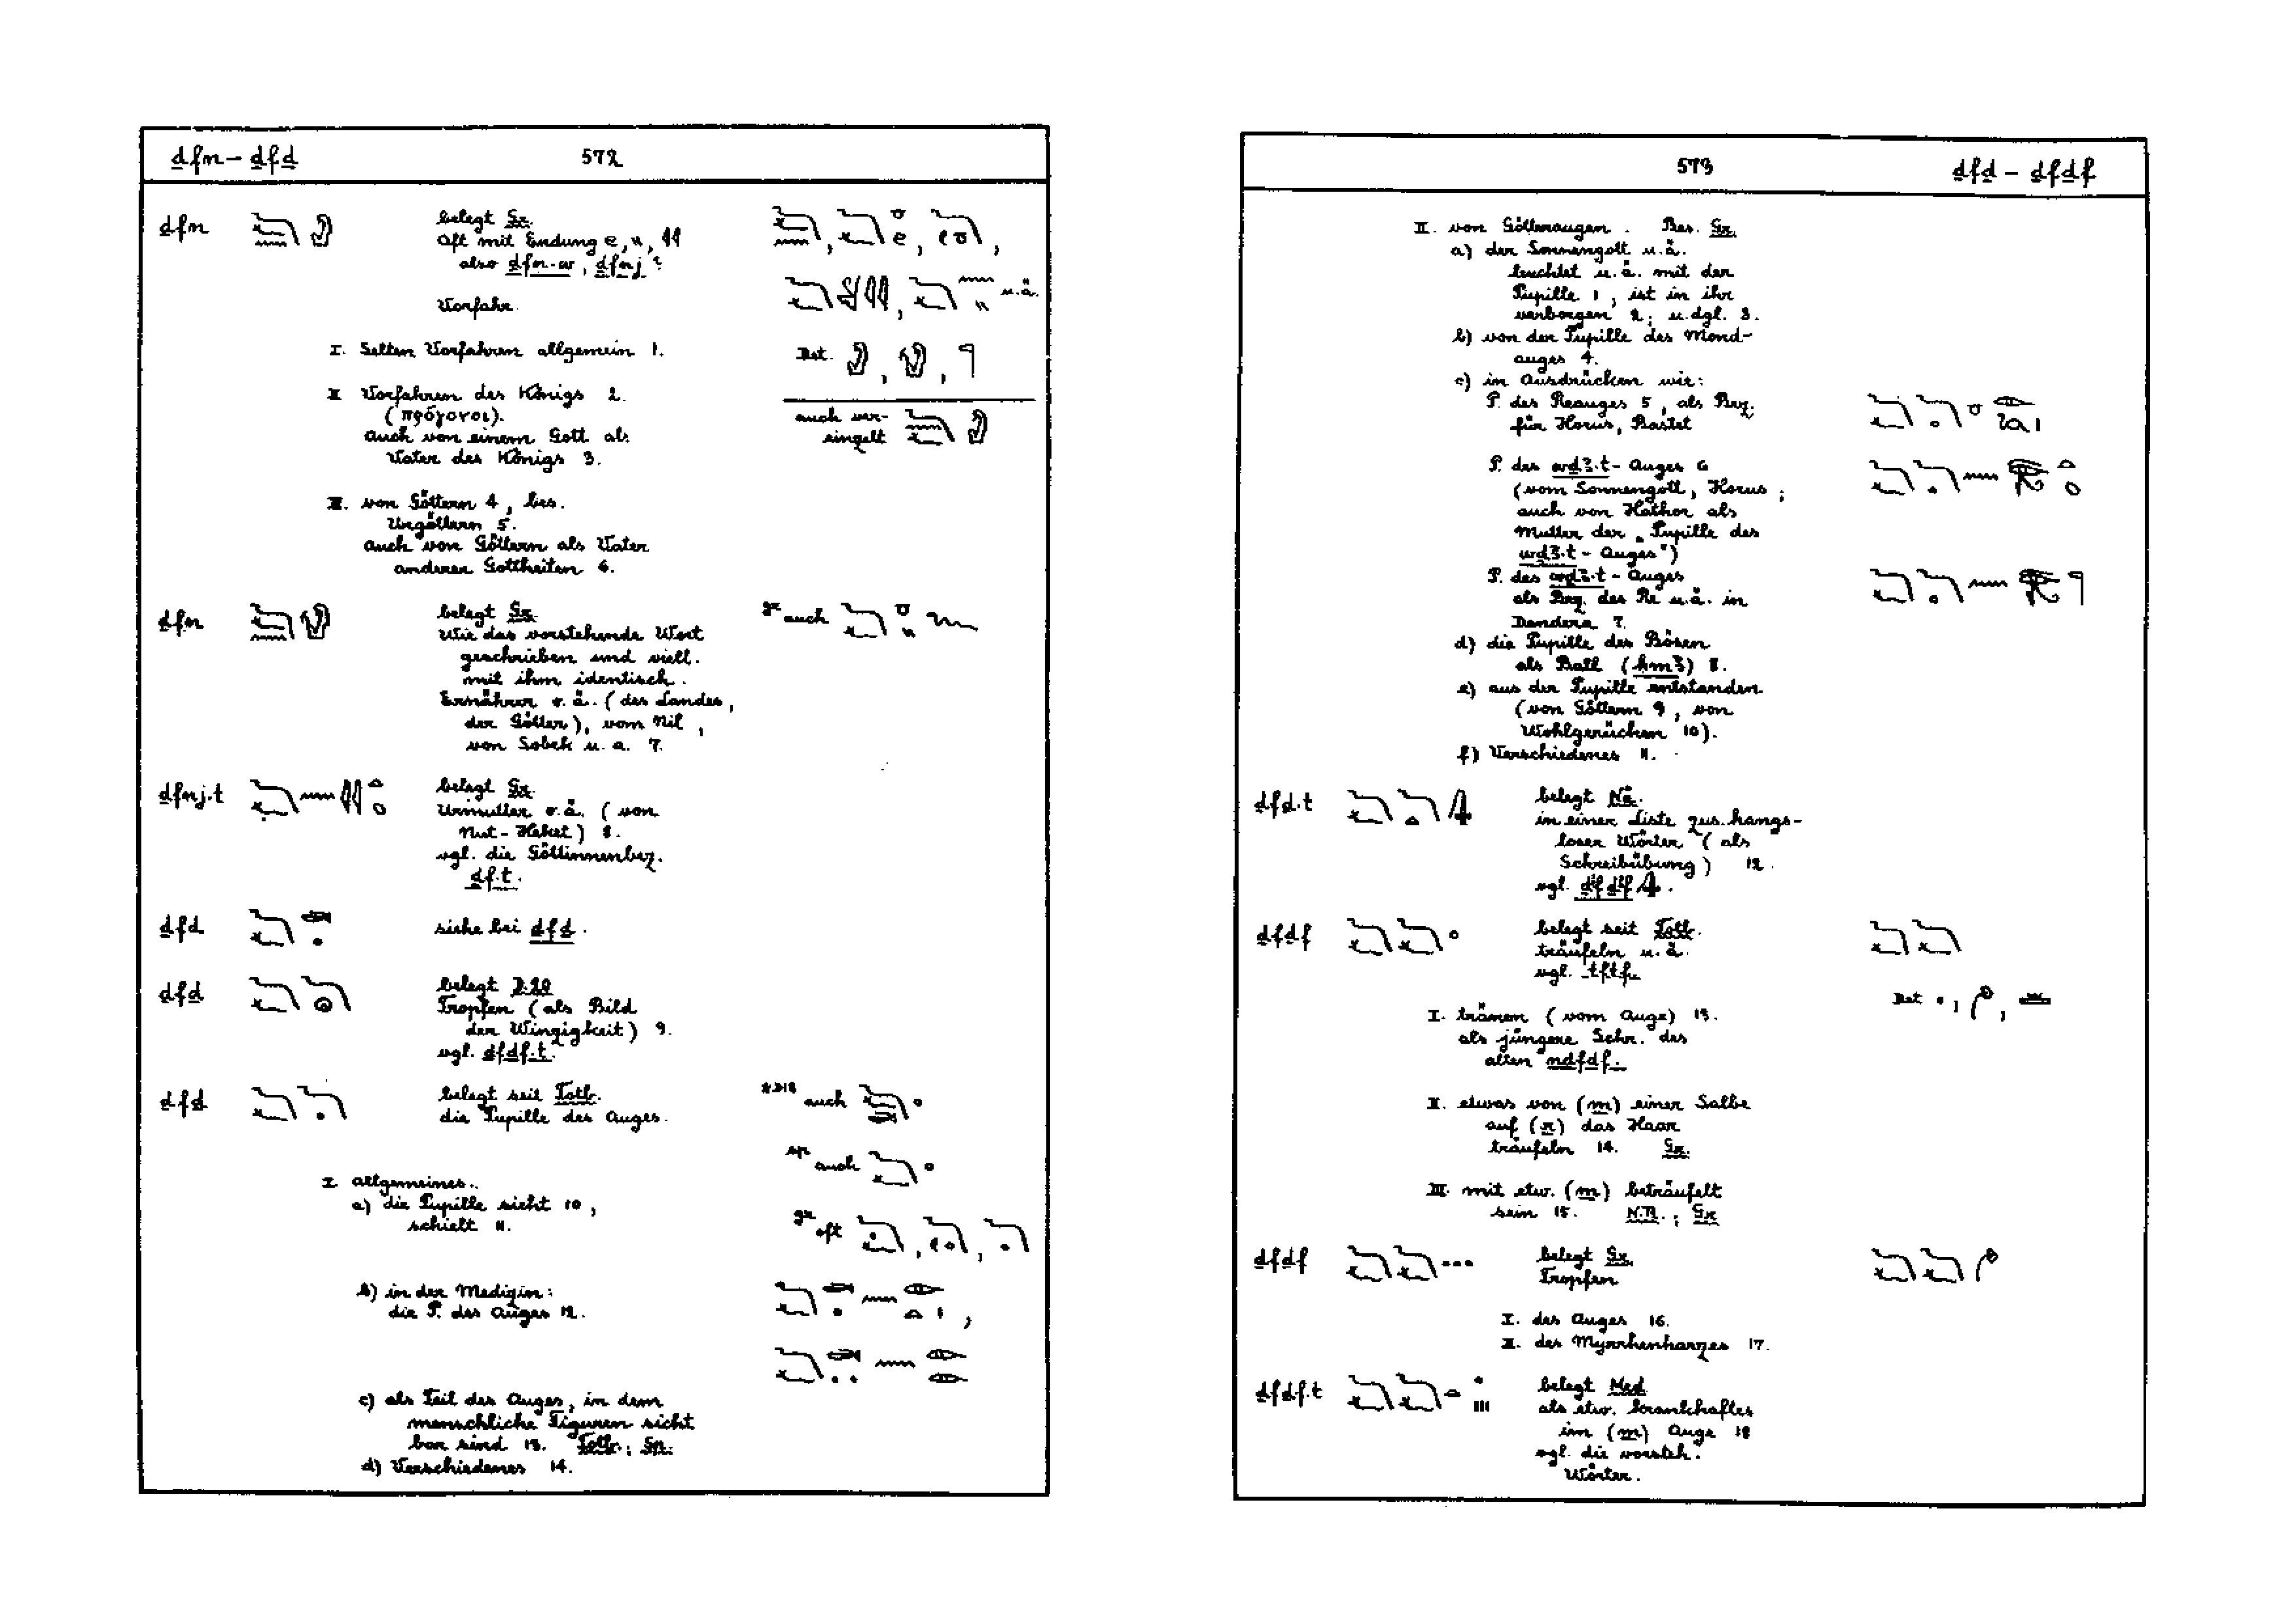 ḏfn – ḏfḏ
572
ḏfn
belegt Gr.
Oft mit Endung
also ḏfn-w, ḏfnj?
Vorfahr.
u.ä.
I. Selten Vorfahren allgemein 1.
Det.
II Vorfahren des Königs 2.
(πρόγονοι).
auch von einem Gott als
Vater des Königs 3.
auch ver-
einzelt
III. von Göttern 4, bes.
Urgöttern 5.
auch von Göttern als Vater
anderer Gottheiten 6.
ḏfn
belegt Gr.
Wie das vorstehende Wort
geschrieben und viell.
mit ihm identisch.
Ernährer o.ä. (des Landes,
der Götter), vom Nil,
von Sobek u.a. 7.
gr auch
ḏfnj.t
belegt Gr.
Urmutter o.ä. (von
Nut-Heket) 8.
vgl. die Göttinnenbez.
ḏf.t.
ḏfd
siehe bei ḏfḏ.
ḏfḏ
belegt D.20
Tropfen (als Bild
der Winzigkeit) 9.
vgl. ḏfḏf.t.
ḏfḏ
belegt seit Totb.
die Pupille des Auges.
auch
sp auch
gr oft
I. allgemeines.
a) die Pupille sieht 10,
schielt 11.
b) in der Medizin:
die P. des Auges 12.
c) als Teil des Auges, in dem
menschliche Figuren sicht
bar sind 13. Totb.; Gr.
d) Verschiedenes 14.
573
ḏfḏ – ḏfḏf
II. von Götteraugen. Bes. Gr.
a) der Sonnengott u.ä.
leuchtet u.ä. mit der
Pupille 1, ist in ihr
verborgen 2; u.dgl. 3.
b) von der Pupille des Mond-
auges 4.
c) in Ausdrücken wie:
P. des Reauges 5, als Bez.
für Horus, Bastet
P. des wḏꜣ.t-Auges 6
(vom Sonnengott, Horus;
auch von Hathor als
Mutter der „Pupille des
wḏꜣ.t-Auges")
P. des wḏꜣ.t-Auges
als Bez. des Re u.ä. in
Dendera 7.
d) die Pupille des Bösen
als Ball (hmꜣ) 8.
e) aus der Pupille entstanden
(von Göttern 9, von
Wohlgerüchen 10).
f) Verschiedenes 11.
ḏfḏ.t
belegt Nä.
in einer Liste zus.hangs-
loser Wörter (als
Schreibübung) 12.
vgl.
ḏfḏf
belegt seit Totb.
träufeln u.ä.
vgl. tftf.
Det
I. tränen (vom Auge) 13.
als jüngere Schr. des
alten nḏfḏf.
II. etwas von (m) einer Salbe
auf (r) das Haar
träufeln 14. Gr.
III. mit etw. (m) beträufelt
sein 15. N.R.; Gr
ḏfḏf
belegt Gr.
Tropfen
I. des Auges 16.
II. des Myrrhenharzes 17.
ḏfḏf.t
belegt Med
als etw. krankhaftes
im (m) Auge 18
vgl. die vorsteh.
Wörter.